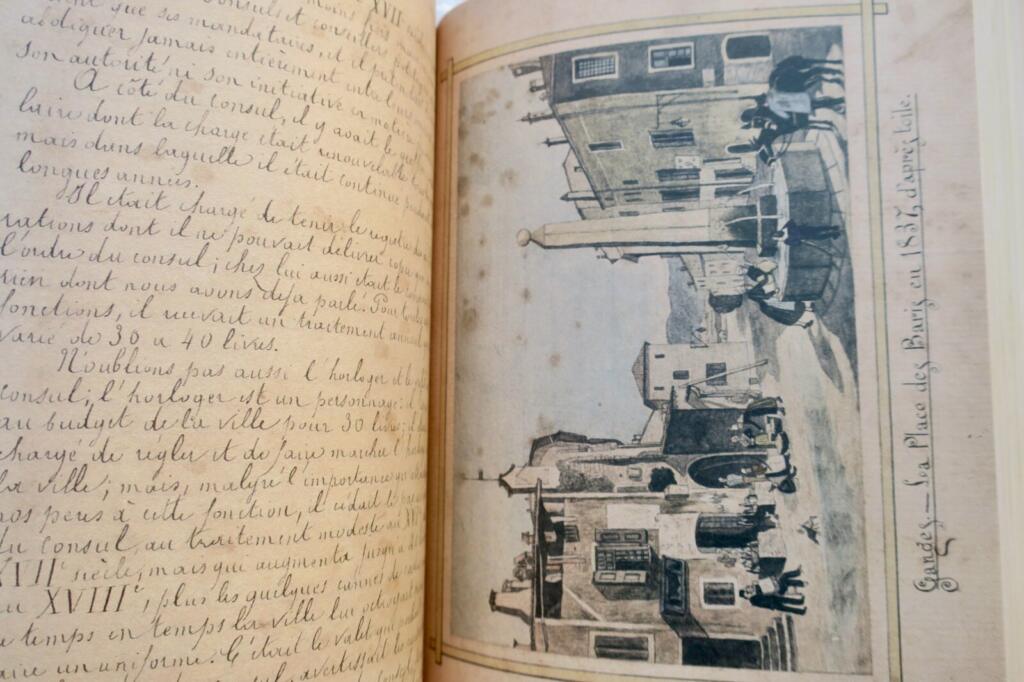 moins, pas XVIIe
consuls et conseillers
que ses mandataires, et il
abdiquer jamais entièrement entre leurs
son autorité ni son initiative en matière
A côté du consul, il y avait le gref
faire dont la charge était renouvelable
mais dans laquelle il était continué pendant
longues années.
Il était chargé de tenir le registre des
rations dont il ne pouvait délivrer copie
l'ordre du consul; chez lui aussi était le
rien dont nous avons déjà parlé. Pour
fonctions, il recevait un traitement annuel
varié de 30 à 40 livres.
N'oublions pas aussi l'horloger et le
consul; l'horloger est un personnage: il
au budget de la ville pour 30 livres; il
chargé de régler et de faire marcher l'
la ville; mais, malgré l'importance
nos pères à cette fonction, il cédait le
du consul, au traitement modeste au XVIe
XVIIe siècle, mais qui augmenta jusqu'à
au XVIIIe, plus les quelques cannes de
de temps en temps la ville lui octroyait
faire un uniforme. C'était le valet qui
Gandes, — La Place des Baris en 1837, d'après toile.